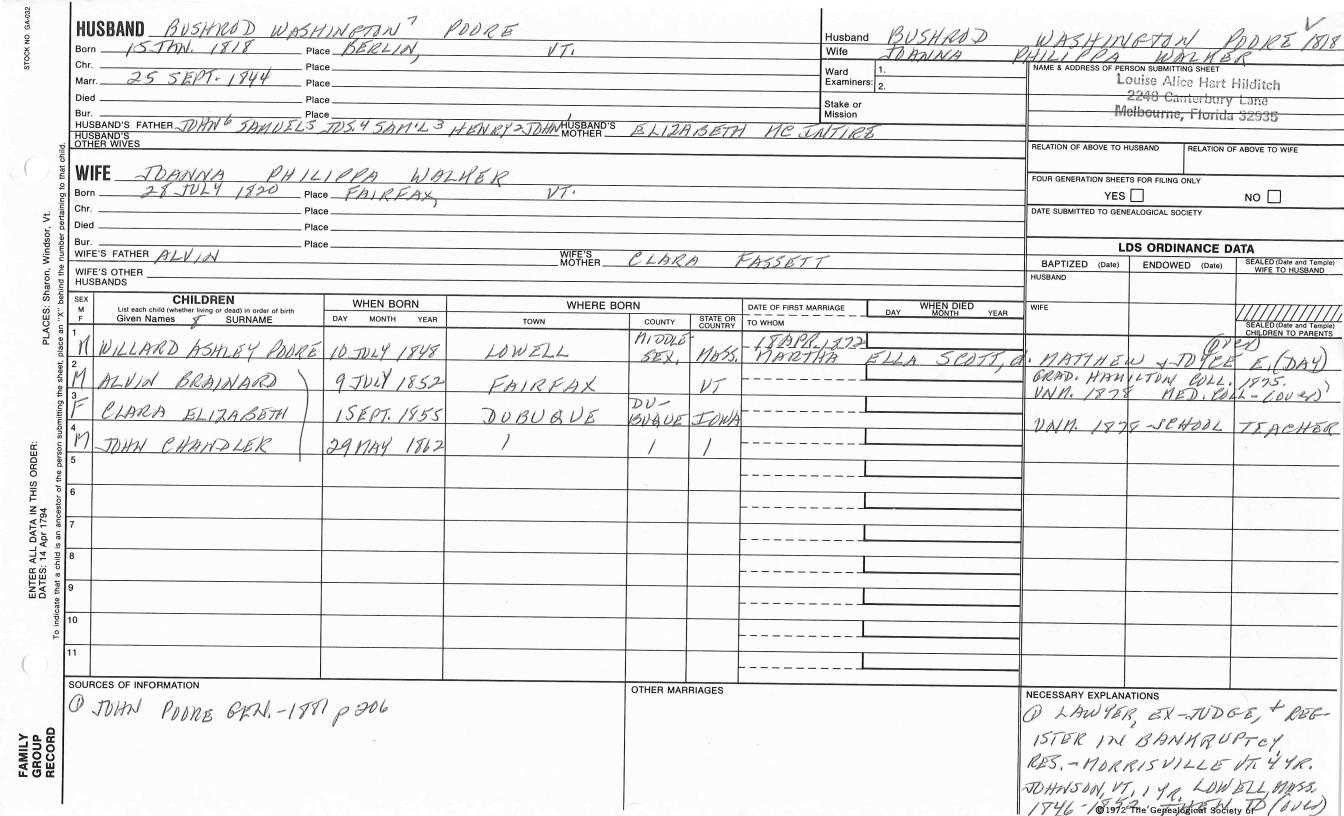 STOCK NO. GA-032
HUSBAND BUSHROD WASHINGTON⁷ POORE
Born 15 JAN. 1818 Place BERLIN, VT.
Chr. Place
Marr. 25 SEPT. 1844 Place
Died Place
Bur. Place
HUSBAND'S FATHER JOHN⁶ SAMUEL⁵ JOS.⁴ SAM'L³ HENRY² JOHN¹ HUSBAND'S MOTHER ELIZABETH MCINTIRE
HUSBAND'S OTHER WIVES
Husband BUSHROD WASHINGTON POORE 1818
Wife JOANNA PHILIPPA WALKER
Ward Examiners: 1.
2.
Stake or Mission
NAME & ADDRESS OF PERSON SUBMITTING SHEET
Louise Alice Hart Hilditch
2248 Canterbury Lane
Melbourne, Florida 32935
RELATION OF ABOVE TO HUSBAND RELATION OF ABOVE TO WIFE
FOUR GENERATION SHEETS FOR FILING ONLY
YES NO
DATE SUBMITTED TO GENEALOGICAL SOCIETY
WIFE JOANNA PHILIPPA WALKER
Born 28 JULY 1820 Place FAIRFAX, VT.
Chr. Place
Died Place
Bur. Place
WIFE'S FATHER ALVIN WIFE'S MOTHER CLARA FASSETT
WIFE'S OTHER HUSBANDS
LDS ORDINANCE DATA
BAPTIZED (Date) ENDOWED (Date) SEALED (Date and Temple) WIFE TO HUSBAND
HUSBAND
WIFE
SEALED (Date and Temple) CHILDREN TO PARENTS
SEX M F CHILDREN WHEN BORN WHERE BORN DATE OF FIRST MARRIAGE WHEN DIED
List each child (whether living or dead) in order of birth
Given Names 8 SURNAME DAY MONTH YEAR TOWN COUNTY STATE OR COUNTRY TO WHOM DAY MONTH YEAR
1 M WILLARD ASHLEY POORE 10 JULY 1848 LOWELL MIDDLE-SEX, MASS. 18 APR. 1872 (over)
MARTHA ELLA SCOTT, d. MATTHEW + JOYCE E. (DAY)
2 M ALVIN BRAINARD 9 JULY 1852 FAIRFAX VT GRAD. HAMILTON COLL. 1875.
UNM. 1878 MED. COLL - (over)
3 F CLARA ELIZABETH 1 SEPT. 1855 DUBUQUE DU-BUQUE IOWA UNM. 1878 -SCHOOL TEACHER
4 M JOHN CHANDLER 29 MAY 1862
5
6
7
8
9
10
11
SOURCES OF INFORMATION
① JOHN POORE GEN. -1881 p 206
OTHER MARRIAGES
NECESSARY EXPLANATIONS
① LAWYER, EX-JUDGE, + REG-
ISTER IN BANKRUPTCY,
RES. - MORRISVILLE VT. 4 YR.
JOHNSON, VT, 1 YR, LOWELL, MASS.
1846-1852, THEN TO (over)
©1972 The Genealogical Society of
PLACES: Sharon, Windsor, Vt.
ENTER ALL DATA IN THIS ORDER:
DATES: 14 Apr 1794
To indicate that a child is an ancestor of the person submitting the sheet, place an "X" behind the number pertaining to that child.
FAMILY
GROUP
RECORD